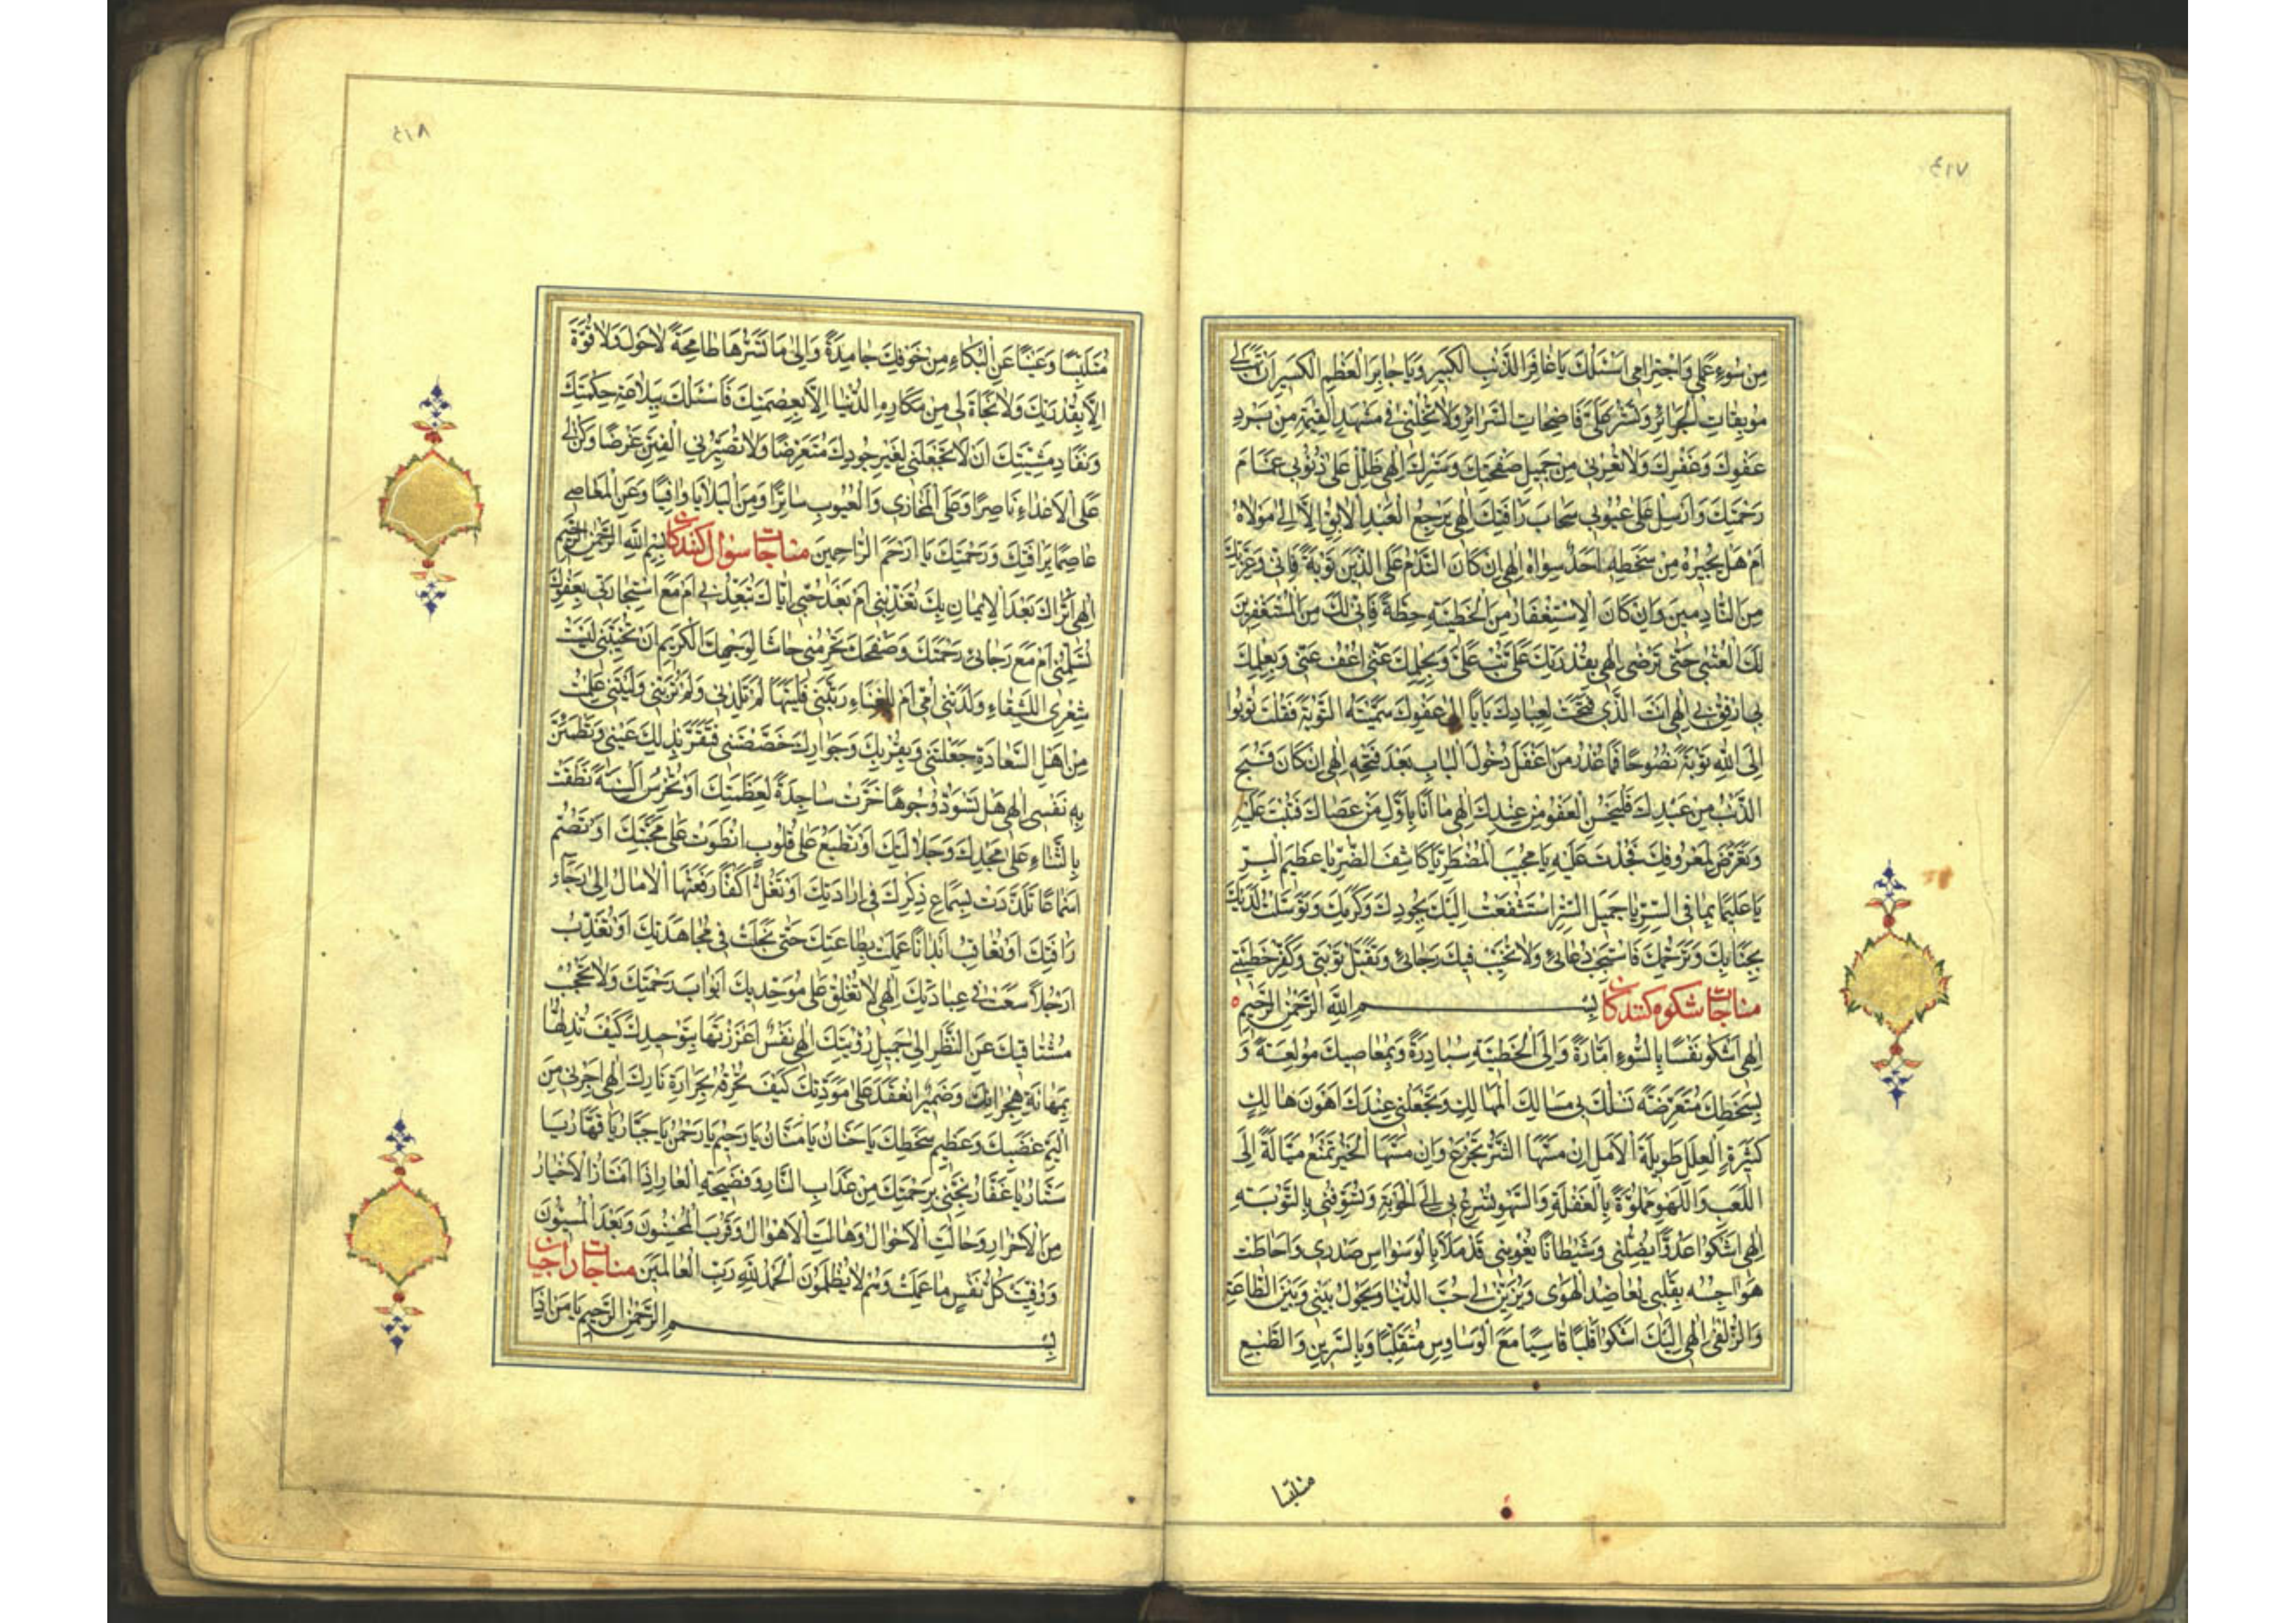 ٤١٧
مِن سُوءِ عَمَلي وَاجْتِرامي اَسْئَلُكَ يَا غافِرَ الذَّنْبِ الْكَبيرِ وَيَا جابِرَ الْعَظْمِ الْكَسيرِ اَنْ تَهَبَ لي
مُوبِقاتِ الْجَرائِرِ وَتَسْتُرَ عَلَيَّ فاضِحاتِ السَّرائِرِ وَلا تُخْلِني في مَشْهَدِ الْقِيٰمَةِ مِنْ بَرْدِ
عَفْوِكَ وَغَفْرِكَ وَلا تُعْرِني مِنْ جَميلِ صَفْحِكَ وَسَتْرِكَ اِلٰهي ظَلِّلْ عَلىٰ ذُنُوبي غَمامَ
رَحْمَتِكَ وَاَرْسِلْ عَلىٰ عُيُوبي سَحابَ رَأفَتِكَ اِلٰهي هَلْ يَرْجِعُ الْعَبْدُ الْاٰبِقُ اِلّا اِلىٰ مَوْلاهُ
اَمْ هَلْ يُجيرُهُ مِنْ سَخَطِهِ اَحَدٌ سِواهُ اِلٰهي اِنْ كانَ النَّدَمُ عَلَى الذَّنْبِ تَوْبَةً فَاِنّي وَعِزَّتِكَ
مِنَ النّادِمينَ وَاِنْ كانَ الْاِسْتِغْفارُ مِنَ الْخَطيئَةِ حِطَّةً فَاِنّي لَكَ مِنَ الْمُسْتَغْفِرينَ
لَكَ الْعُتْبىٰ حَتّىٰ تَرْضىٰ اِلٰهي بِقُدْرَتِكَ عَلَيَّ تُبْ عَلَيَّ وَبِحِلْمِكَ عَنّي اعْفُ عَنّي وَبِعِلْمِكَ
بي ارْفَقْ بي اِلٰهي اَنْتَ الَّذي فَتَحْتَ لِعِبادِكَ باباً اِلىٰ عَفْوِكَ سَمَّيْتَهُ التَّوْبَةَ فَقُلْتَ تُوبُوا
اِلَى اللّٰهِ تَوْبَةً نَصُوحاً فَما عُذْرُ مَنْ اَغْفَلَ دُخُولَ الْبابِ بَعْدَ فَتْحِهِ اِلٰهي اِنْ كانَ قَبُحَ
الذَّنْبُ مِنْ عَبْدِكَ فَلْيَحْسُنِ الْعَفْوُ مِنْ عِنْدِكَ اِلٰهي ما اَنَا بِاَوَّلِ مَنْ عَصاكَ فَتُبْتَ عَلَيْهِ
وَتَعَرَّضَ لِمَعْرُوفِكَ فَجُدْتَ عَلَيْهِ يا مُجيبَ الْمُضْطَرِّ يا كاشِفَ الضُّرِّ يا عَظيمَ الْبِرِّ
يا عَليماً بِما فِي السِّرِّ يا جَميلَ السَّتْرِ اسْتَشْفَعْتُ اِلَيْكَ بِجُودِكَ وَكَرَمِكَ وَتَوَسَّلْتُ لَدَيْكَ
بِجَنابِكَ وَتَرَحُّمِكَ فَاسْتَجِبْ دُعائي وَلا تُخَيِّبْ فيكَ رَجائي وَتَقَبَّلْ تَوْبَتي وَكَفِّرْ خَطيئَتي
مناجات شكوه كنندكان بِسْمِ اللّٰهِ الرَّحْمٰنِ الرَّحيمِ
اِلٰهي اَشْكُو نَفْساً بِالسُّوءِ اَمّارَةً وَاِلَى الْخَطيئَةِ مُبادِرَةً وَبِمَعاصيكَ مُولَعَةً وَ
بِسَخَطِكَ مُتَعَرِّضَةً تَسْلُكُ بي مَسالِكَ الْمَهالِكِ وَتَجْعَلُني عِنْدَكَ اَهْوَنَ هالِكٍ
كَثيرَةَ الْعِلَلِ طَويلَةَ الْاَمَلِ اِنْ مَسَّهَا الشَّرُّ تَجْزَعُ وَاِنْ مَسَّهَا الْخَيْرُ تَمْنَعُ مَيّالَةً اِلَى
اللَّعِبِ وَاللَّهْوِ مَمْلُوَّةً بِالْغَفْلَةِ وَالسَّهْوِ تُسْرِعُ بي اِلَى الْحَوْبَةِ وَتُسَوِّفُني بِالتَّوْبَةِ
اِلٰهي اَشْكُو اَعُدُوّاً يُضِلُّني وَشَيْطاناً يُغْويني قَدْ مَلَأَ بِالْوَسْواسِ صَدْري وَاَحاطَتْ
هَواجِسُهُ بِقَلْبي يُعاضِدُ الْهَوىٰ وَيُزَيِّنُ لي حُبَّ الدُّنْيا وَيَحُولُ بَيْني وَبَيْنَ الطّاعَةِ
وَالزُّلْفىٰ اِلٰهي اِلَيْكَ اَشْكُو قَلْباً قاسِياً مَعَ الْوَساوِسِ مُتَقَلِّباً وَبِالرَّيْنِ وَالطَّبْعِ
متلبسا
٤١٨
مُتَلَبِّساً وَعَيْناً عَنِ الْبُكاءِ مِنْ خَوْفِكَ جامِدَةً وَاِلىٰ ما تَسُرُّها طامِحَةً لا حَوْلَ وَلا قُوَّةَ
اِلّا بِقُدْرَتِكَ وَلا نَجاةَ لي مِنْ مَكارِهِ الدُّنْيا اِلّا بِعِصْمَتِكَ فَاَسْئَلُكَ بِبَلاغَةِ حِكْمَتِكَ
وَنَفادِ مَشِيَّتِكَ اَنْ لا تَجْعَلَني لِغَيْرِ جُودِكَ مُتَعَرِّضاً وَلا تُصَيِّرَني لِلْفِتَنِ غَرَضاً وَكُنْ لي
عَلَى الْاَعْداءِ ناصِراً وَعَلَى الْمَخازي وَالْعُيُوبِ ساتِراً وَمِنَ الْبَلايا واقِياً وَعَنِ الْمَعاصي
عاصِماً بِرَأْفَتِكَ وَرَحْمَتِكَ يا اَرْحَمَ الرّاحِمينَ مناجات سوال كنندكان بِسْمِ اللّٰهِ الرَّحْمٰنِ الرَّحيمِ
اِلٰهي اَتُراكَ بَعْدَ الْايمانِ بِكَ تُعَذِّبُني اَمْ بَعْدَ حُبّي اِيّاكَ تُبَعِّدُني اَمْ مَعَ اسْتِجارَتي بِعَفْوِكَ
تُسْلِمُني اَمْ مَعَ رَجائي رَحْمَتَكَ وَصَفْحَكَ تَحْرِمُني حاشا لِوَجْهِكَ الْكَريمِ اَنْ تُخَيِّبَني لَيْتَ
شِعْري اَلِلشَّقاءِ وَلَدَتْني اُمّي اَمْ لِلْعَناءِ رَبَّتْني فَلَيْتَها لَمْ تَلِدْني وَلَمْ تُرَبِّني وَلَيْتَني عَلِمْتُ
مِنْ اَهْلِ السَّعادَةِ جَعَلْتَني وَبِقُرْبِكَ وَجِوارِكَ خَصَصْتَني فَتَقَرَّ بِذٰلِكَ عَيْني وَتَطْمَئِنَّ
بِهِ نَفْسي اِلٰهي هَلْ تُسَوِّدُ وُجُوهاً خَرَّتْ ساجِدَةً لِعَظَمَتِكَ اَوْ تُخْرِسُ اَلْسِنَةً نَطَقَتْ
بِالثَّناءِ عَلىٰ مَجْدِكَ وَجَلالَتِكَ اَوْ تَطْبَعُ عَلىٰ قُلُوبٍ انْطَوَتْ عَلىٰ مَحَبَّتِكَ اَوْ تُصِمُّ
اَسْماعاً تَلَذَّذَتْ بِسَماعِ ذِكْرِكَ في اِرادَتِكَ اَوْ تَغُلُّ اَكُفّاً رَفَعَتْهَا الْاٰمالُ اِلىٰ رَجاءِ
رَأْفَتِكَ اَوْ تُعاقِبُ اَبْداناً عَمِلَتْ بِطاعَتِكَ حَتّىٰ نَحِلَتْ في مُجاهَدَتِكَ اَوْ تُعَذِّبُ
اَرْجُلاً سَعَتْ في عِبادَتِكَ اِلٰهي لا تُغْلِقْ عَلىٰ مُوَحِّديكَ اَبْوابَ رَحْمَتِكَ وَلا تَحْجُبْ
مُشْتاقيكَ عَنِ النَّظَرِ اِلىٰ جَميلِ رُؤْيَتِكَ اِلٰهي نَفْسٌ اَعْزَزْتَها بِتَوْحيدِكَ كَيْفَ تُذِلُّها
بِمَهانَةِ هِجْرانِكَ وَضَميرٌ انْعَقَدَ عَلىٰ مَوَدَّتِكَ كَيْفَ تُحْرِقُهُ بِحَرارَةِ نارِكَ اِلٰهي اَجِرْني مِنْ
اَليمِ غَضَبِكَ وَعَظيمِ سَخَطِكَ يا حَنّانُ يا مَنّانُ يا رَحيمُ يا رَحْمٰنُ يا جَبّارُ يا قَهّارُ يا
سَتّارُ يا غَفّارُ نَجِّني بِرَحْمَتِكَ مِنْ عَذابِ النّارِ وَفَضيحَةِ الْعارِ اِذَا امْتازَ الْاَخْيارُ
مِنَ الْاَشْرارِ وَحالَتِ الْاَحْوالُ وَهالَتِ الْاَهْوالُ وَقَرُبَ الْمُحْسِنُونَ وَبَعُدَ الْمُسيئُونَ
وَوُفِّيَتْ كُلُّ نَفْسٍ ما عَمِلَتْ وَهُمْ لا يُظْلَمُونَ الْحَمْدُ لِلّٰهِ رَبِّ الْعالَمينَ مناجات راجيان
بِسْمِ الرَّحْمٰنِ الرَّحيمِ يا مَنْ اِذا